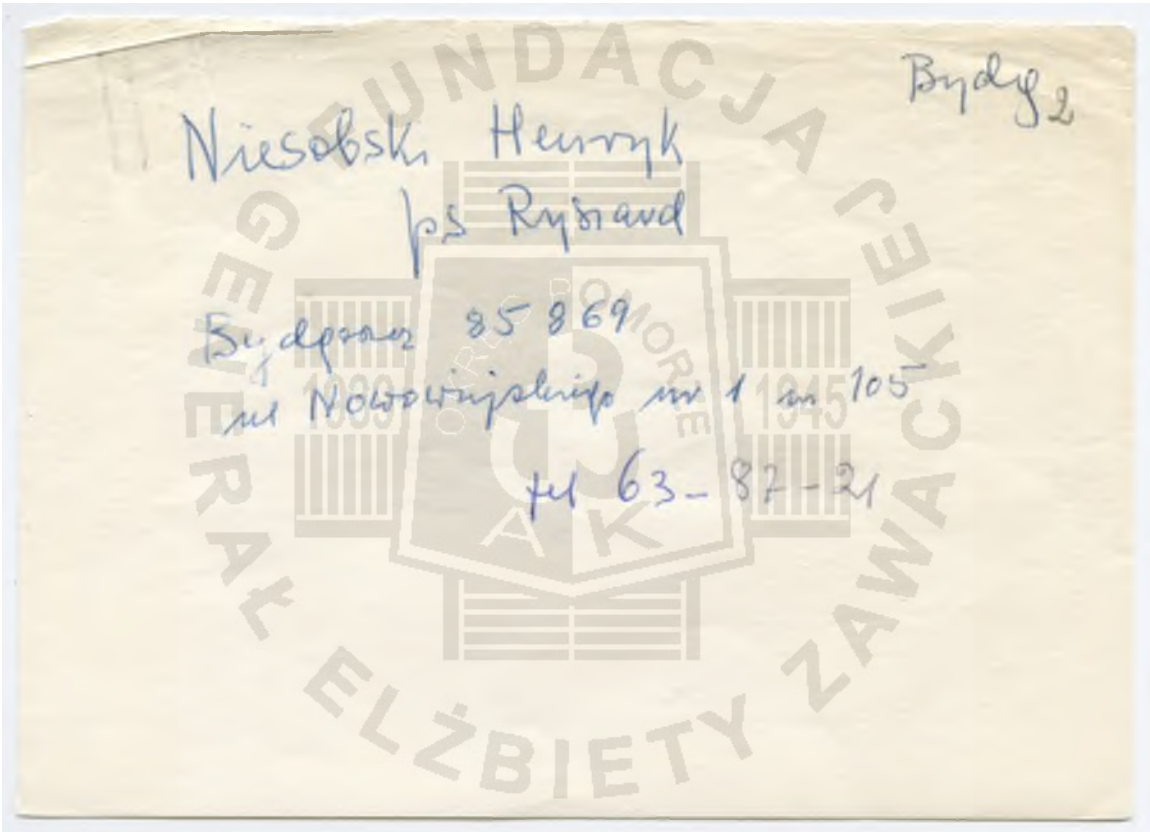 Bydg 2
Niesobski Henryk
ps Ryszard
Bydgoszcz 85 869
ul Nowowiejskiego nr 1 m 105
tel 63-87-21
FUNDACJA GENERAŁ ELŻBIETY ZAWACKIEJ
OKRĘG POMORZE
1939 1945
AK